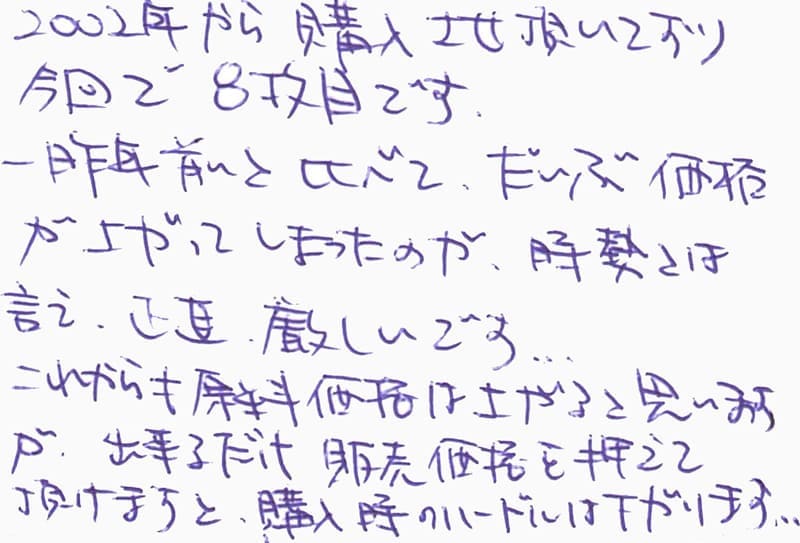 2002年から購入させ頂いており
今回で8枚目です。
一昨年前と比べて、だいぶ価格
が上がってしまったのが、時勢とは
言え、正直、厳しいです…
これからも原料価格は上がると思います
が、出来るだけ販売価格を押えて
頂けますと、購入時のハードルは下がります…